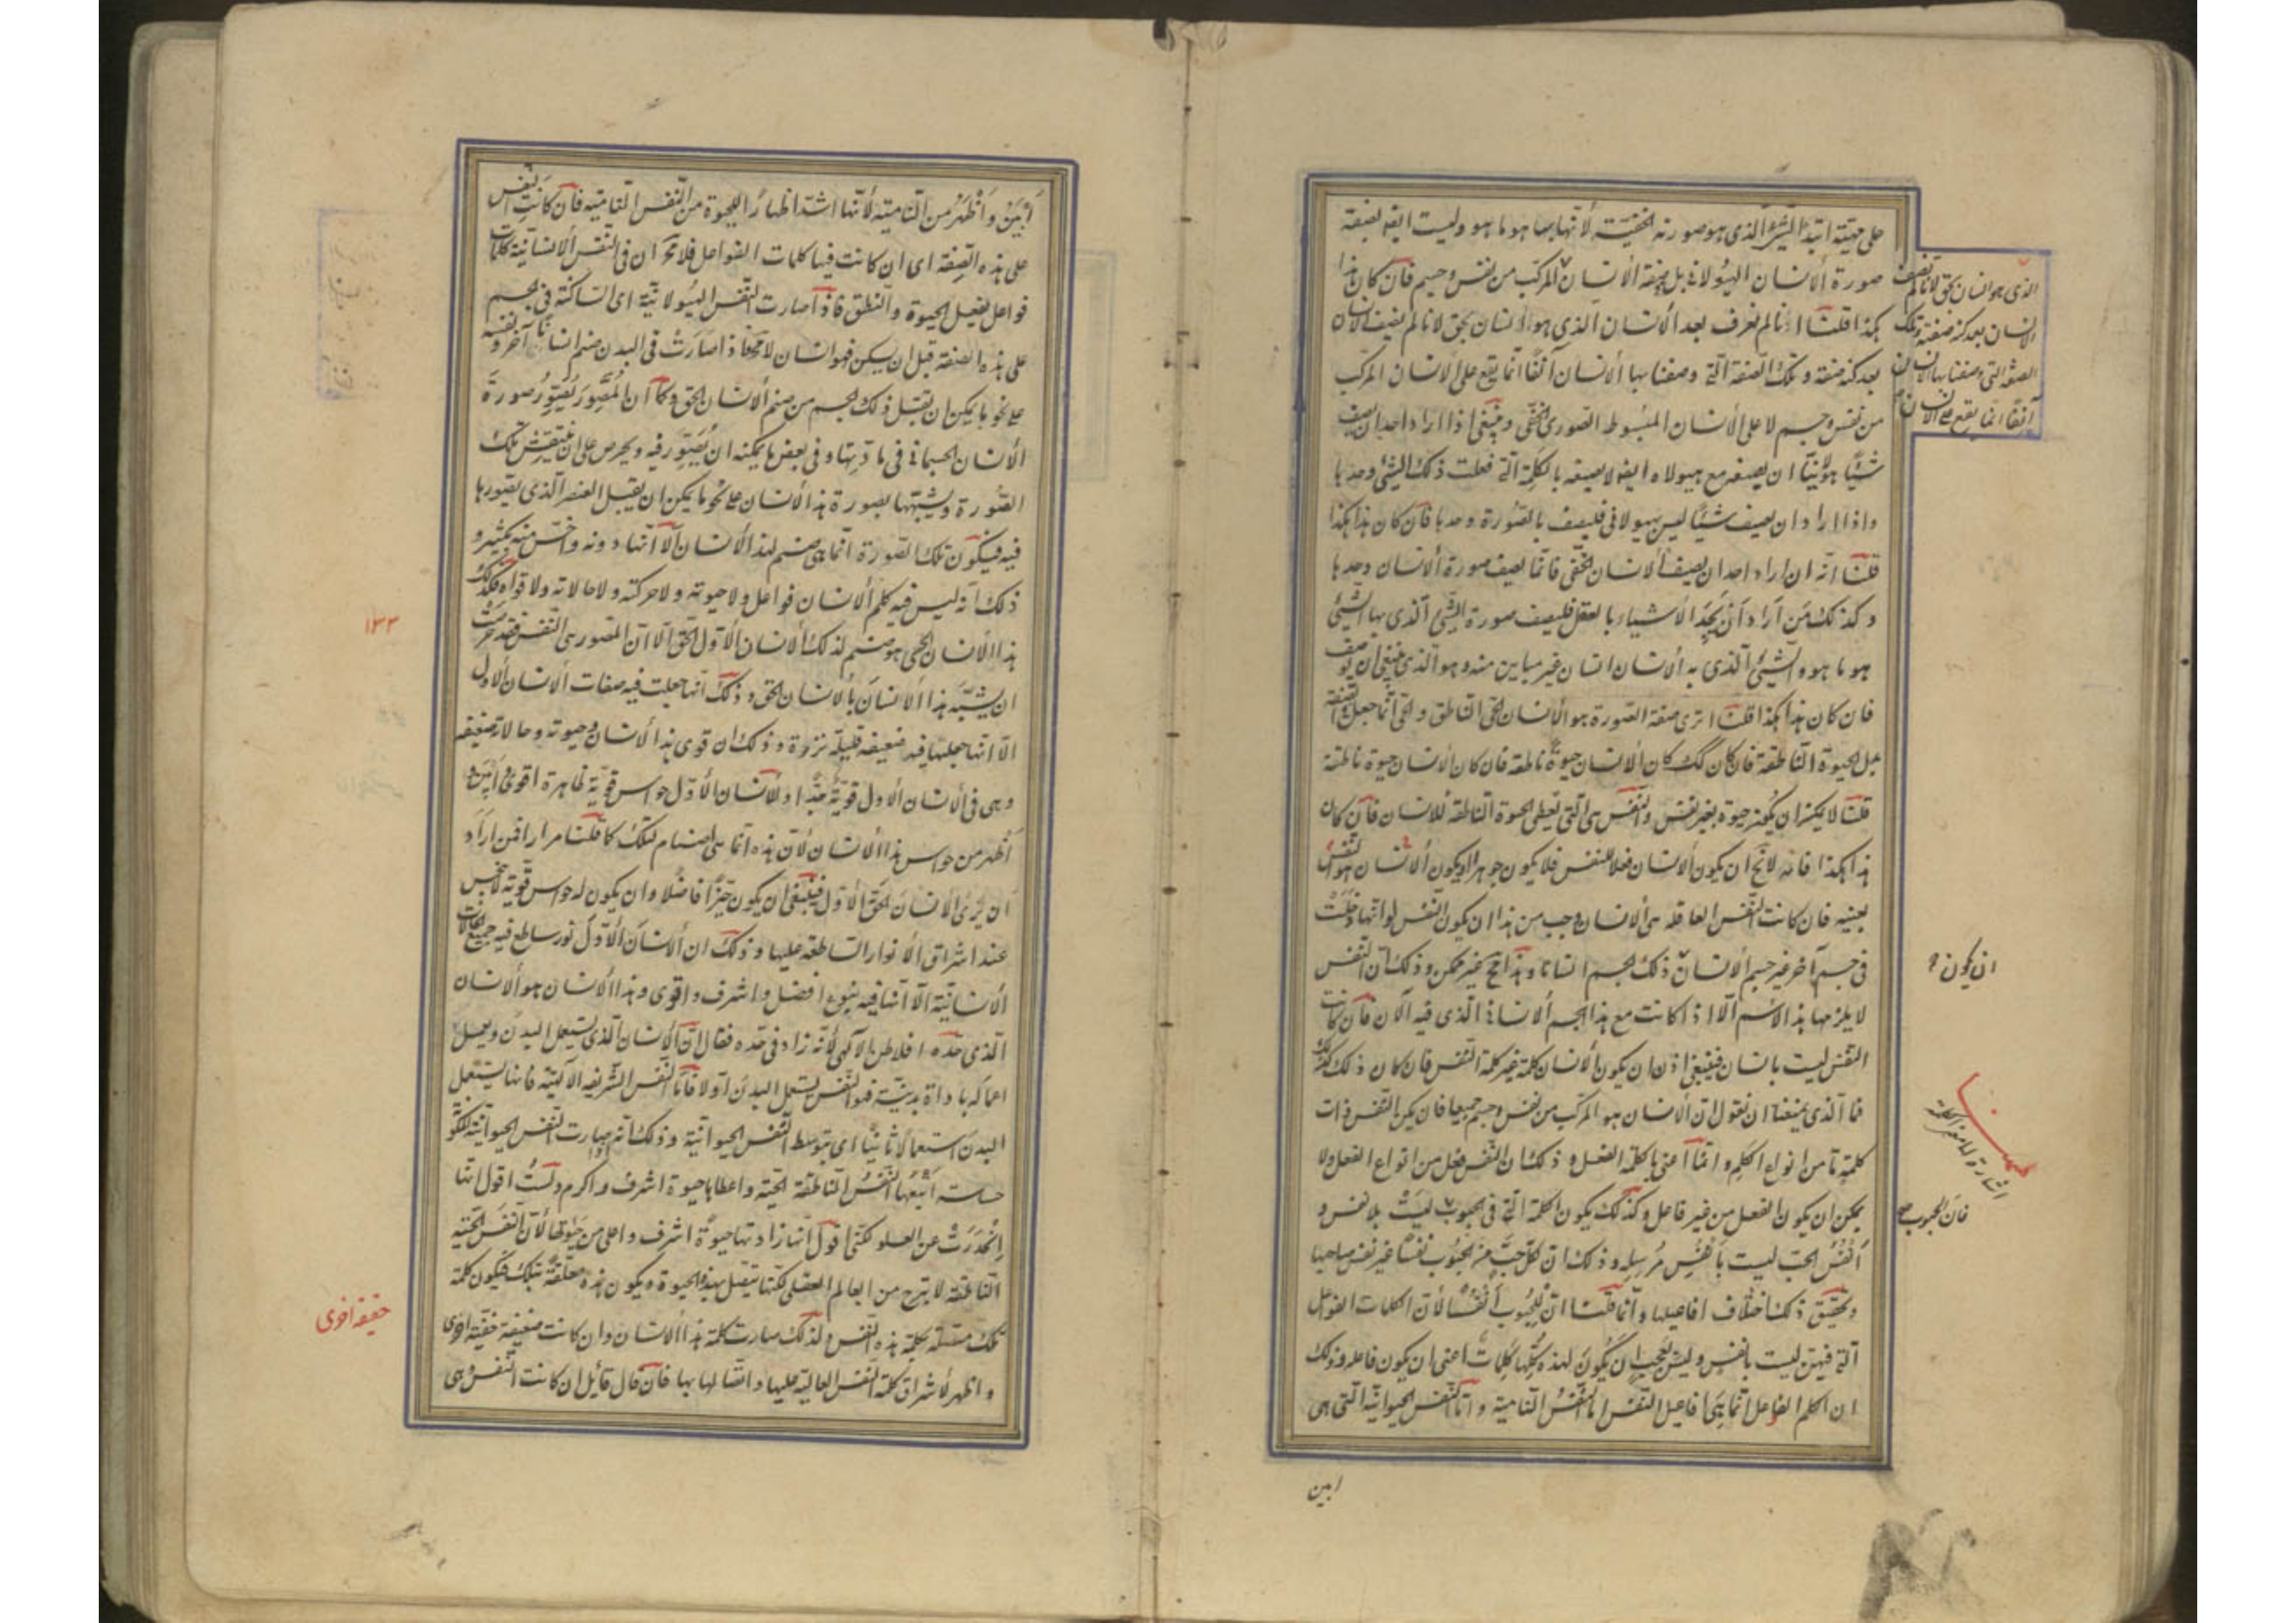 على مهيته ابتداء الشئ الذى هو صورته الحقيقية لأنها بها هو ما هو وليست ايضا بصفة
صورة الأنسان الهيولانى بل صفة الأنسان المركب من نفس وجسم فأن كان هذا
هكذا قلنا انا لم نعرف بعد الأنسان الذى هو انسان بحق لانا لم نصف الأنسان
بعد كنه صفته وتلك الصفة التى وصفنا بها الأنسان آنفا انما يقع على الأنسان المركب
من نفس وجسم لا على الأنسان المبسوط الصورى الحقى وينبغى اذا اراد احد ان يصف
شيئا هيولانيا ان يصفه مع هيولاه ايضا ولا يصفه بالكلمة التى فعلت ذلك الشئ وحدها
واذا اراد ان يصف شيئا ليس بهيولانى فليصف بالصورة وحدها فأن كان هذا هكذا
قلنا انه ان اراد احد ان يصف الأنسان الحقى فانما يصف صورة الأنسان وحدها
وكذلك من اراد أن يحد الأشياء بالعقل فليصف صورة الشئ الذى بها الشئ
هو ما هو والشئ الذى به الأنسان انسان غير مباين منه وهو الذى ينبغى ان يوصف
فان كان هذا هكذا قلنا اترى صفة الصورة هو الأنسان الحى الناطق والحى انما جعل فى الصفة
بدل الحيوة الناطقة فان كان كك كان الأنسان حيوة ناطقة فان كان الأنسان حيوة ناطقة
قلنا لا يمكن ان يكون حيوة بغير نفس والنفس هى التى تعطى الحيوة الناطقة للأنسان فأن كان
هذا هكذا فانه لا يخ ان يكون الأنسان فعلا للنفس فلا يكون جوهرا او يكون الأنسان هو النفس
بعينه فان كانت النفس العاقلة هى الأنسان وجب من هذا ان يكون النفس لو انها دخلت
فى جسم آخر غير جسم الأنسان ذلك الجسم انسانا وهذا مح غير ممكن وذلك أن النفس
لا يلزمها هذا الأسم الا اذا كانت مع هذا الجسم الأنسانى الذى فيه الآن فأن كانت
النفس ليست بانسان فينبغى اذن ان يكون الأنسان كلمة غير كلمة النفس فان كان ذلك كذلك
فما الذى يمنعنا ان نقول ان الأنسان هو المركب من نفس وجسم جميعا فان يكن النفس ذات
كلمة ما من انواع الكلم وانما أعنى بالكلمة الفعل وذلك ان النفس فعل من انواع الفعل ولا
يمكن ان يكون الفعل من غير فاعل وكذلك يكون الكلمة التى فى الحبوب ليست بلا نفس و
أنفس الحب ليست بأنفس مرسلة وذلك ان لكل حب من الحبوب نفسا غير نفس صاحبها
ويحقق ذلك اختلاف افاعيلها وانما قلنا ان للحبوب أنفسا لأن الكلمات الفواعل
التى فيهن ليست بانفس وليس بعجب ان يكون لهذه كلها كلمات اعنى ان يكون فاعله وذلك
ان الكلم الفواعل انما هى افاعيل النفس النامية واما النفس الحيوانية التى هى
ابين
الذى هو انسان بحق لانا لم نصف
الانسان بعد كنه صفته وتلك
الصفة التى وصفنا بها الانسان
آنفا انما يقع على الانسان
ان يكون
فان الحبوب
أبين وأظهر من النامية لأنها اشد اظهارا للحيوة من النفس النامية فأن كانت النفس
على هذه الصفة اى ان كانت فيها كلمات الفواعل فلا محالة ان فى النفس الأنسانية كلمات
فواعل يفعل الحيوة والنطق فاذا صارت النفس الهيولانية اى الساكنة فى الجسم
على هذه الصفة قبل ان يسكن فهو انسان لا محالة فاذا صارت فى البدن صنم انسانا آخر ونفسه
على نحو ما يمكن ان يقبل ذلك الجسم من صنم الأنسان الحق وكما أن المصور يصور صورة
الأنسان الجسمانى فى مادتها وفى بعض ما يمكنه ان يصور فيه ويحرص على ان ينقش تلك
الصورة ويشبهها بصورة هذا الأنسان على نحو ما يمكن ان يقبل العنصر الذى يصورها
فيه فيكون تلك الصورة انما هى صنم لهذا الأنسان الا انها دونه واخس منه بكثير و
ذلك أنه ليس فيه كلم الأنسان فواعل ولا حيوته ولا حركته ولا حالاته ولا قواه فكذلك
هذا الأنسان الحسى هو صنم لذلك الأنسان الأول الحق الا ان المصور هى النفس فقد حرصت
ان يشبه هذا الأنسان بالأنسان الحق وذلك انها جعلت فيه صفات الأنسان الأول
الا انها جعلها فيه ضعيفة قليلة نزرة وذلك ان قوى هذا الأنسان وحيوته وحالاته ضعيفة
وهى فى الأنسان الأول قوية جدا وللأنسان الأول حواس قوية ظاهرة اقوى وأبين و
أظهر من حواس هذا الأنسان لأن هذه انما هى اصنام لتلك كما قلنا مرارا فمن اراد
ان يرى الأنسان الحق الأول فينبغى ان يكون خيرا فاضلا وان يكون له حواس قوية لا تنحبس
عند اشراق الأنوار الساطعة عليها وذلك ان الأنسان الأول نور ساطع فيه جميع الحالات
الأنسانية الا انها فيه بنوع افضل واشرف واقوى وهذا الأنسان هو الأنسان
الذى حده افلاطن الآلهى لأنه زاد فى حده فقال ان الأنسان الذى يستعمل البدن ويعمل
اعماله باداة بدنية فهو النفس يستعمل البدن أولا فاما النفس الشريفة الآلهية فانها يستعمل
البدن استعمالا ثانيا اى بتوسط النفس الحيوانية وذلك انه اذا صارت النفس الحيوانية المكونة
حساسة اتبعها النفس الناطقة الحية واعطاها حيوة اشرف واكرم ولست اقول انها
انحدرت عن العلو لكنى اقول انها زادتها حيوة اشرف واعلى من حيوتها لأن النفس الحية
الناطقة لا تبرح من العالم العقلى لكنها تتصل بهذه الحيوة ويكون هذه معلقة بتلك فيكون كلمة
تلك متصلة بكلمة هذه النفس ولذلك صارت كلمة هذا الأنسان وان كانت ضعيفة خفيفة اقوى
واظهر لأشراق كلمة النفس العالية عليها واتصالها بها فأن قال قائل ان كانت النفس هى
١٣٣
خفيفة اخرى